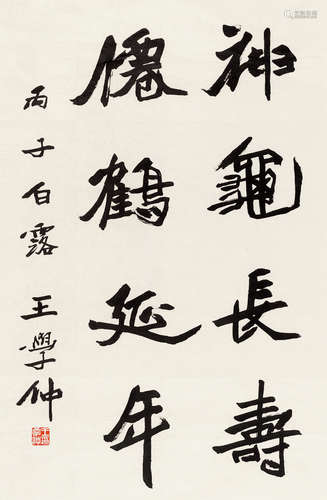 神龜長壽
僊鶴延年
丙子白露 王學仲